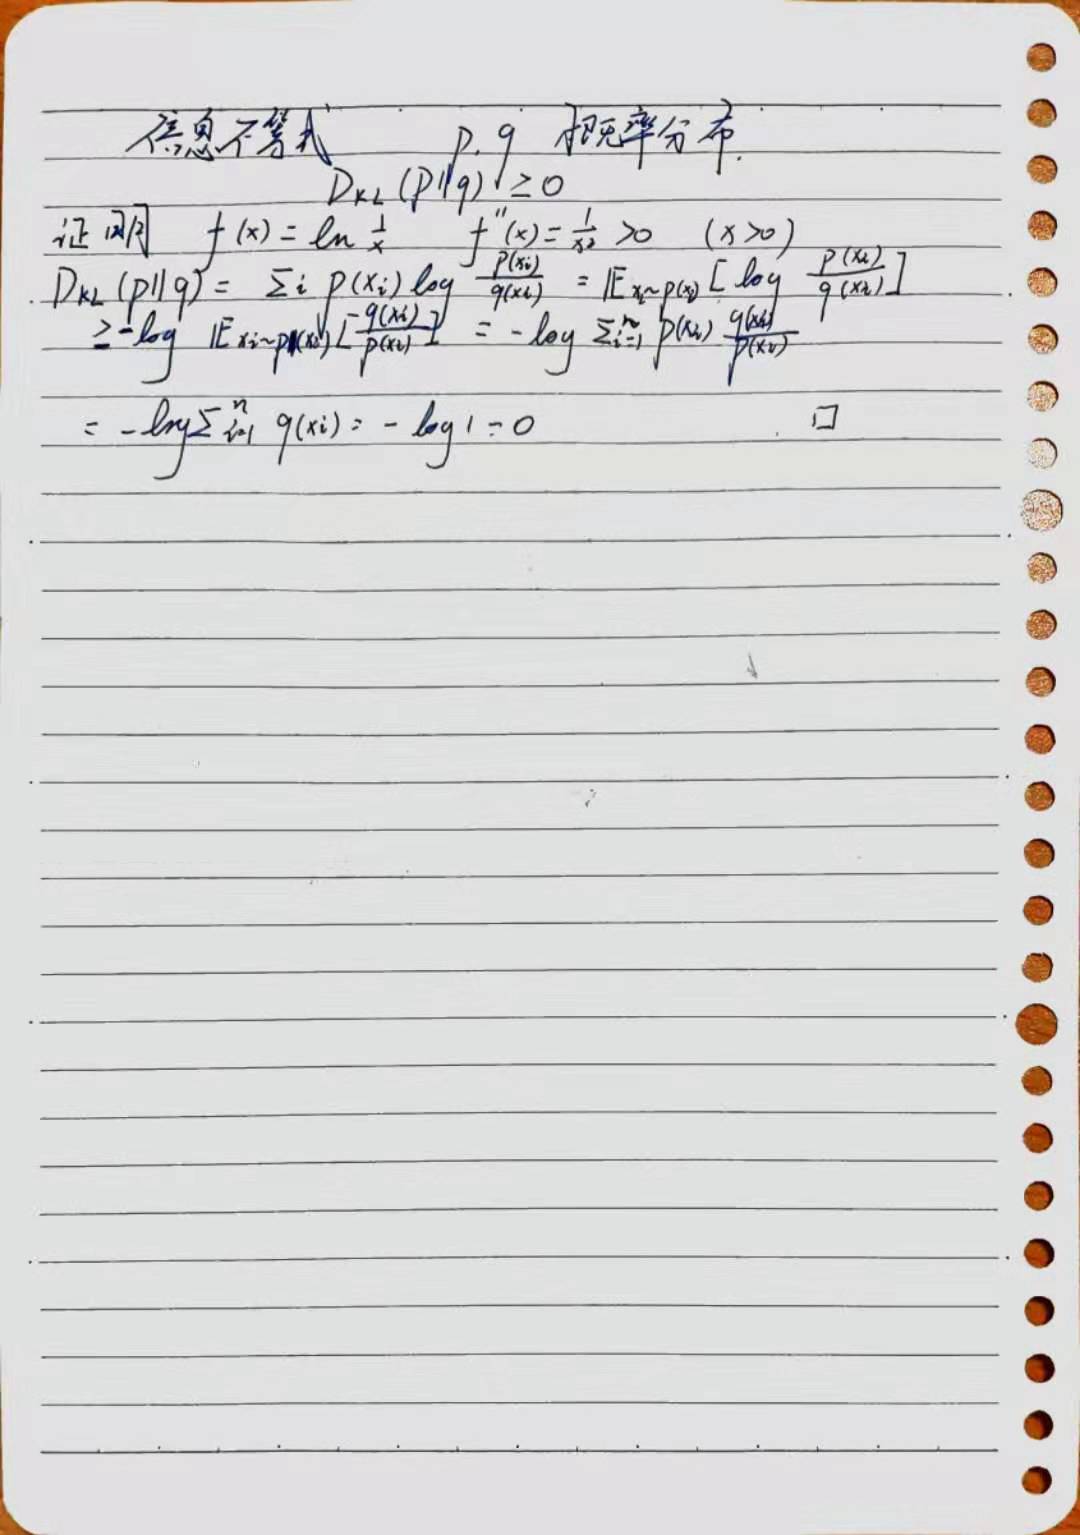 信息不等式 p.q 概率分布.
D_{KL}(p||q) ≥ 0
证明 f(x) = ln 1/x f''(x) = 1/x² >0 (x>0)
D_{KL}(p||q) = Σ_i p(x_i) log p(x_i)/q(x_i) = 𝔼_{x_i~p(x_i)} [log p(x_i)/q(x_i)]
≥ -log 𝔼_{x_i~p(x_i)} [q(x_i)/p(x_i)] = -log Σ_{i=1}^n p(x_i) q(x_i)/p(x_i)
= -log Σ_{i=1}^n q(x_i) = -log 1 = 0 □